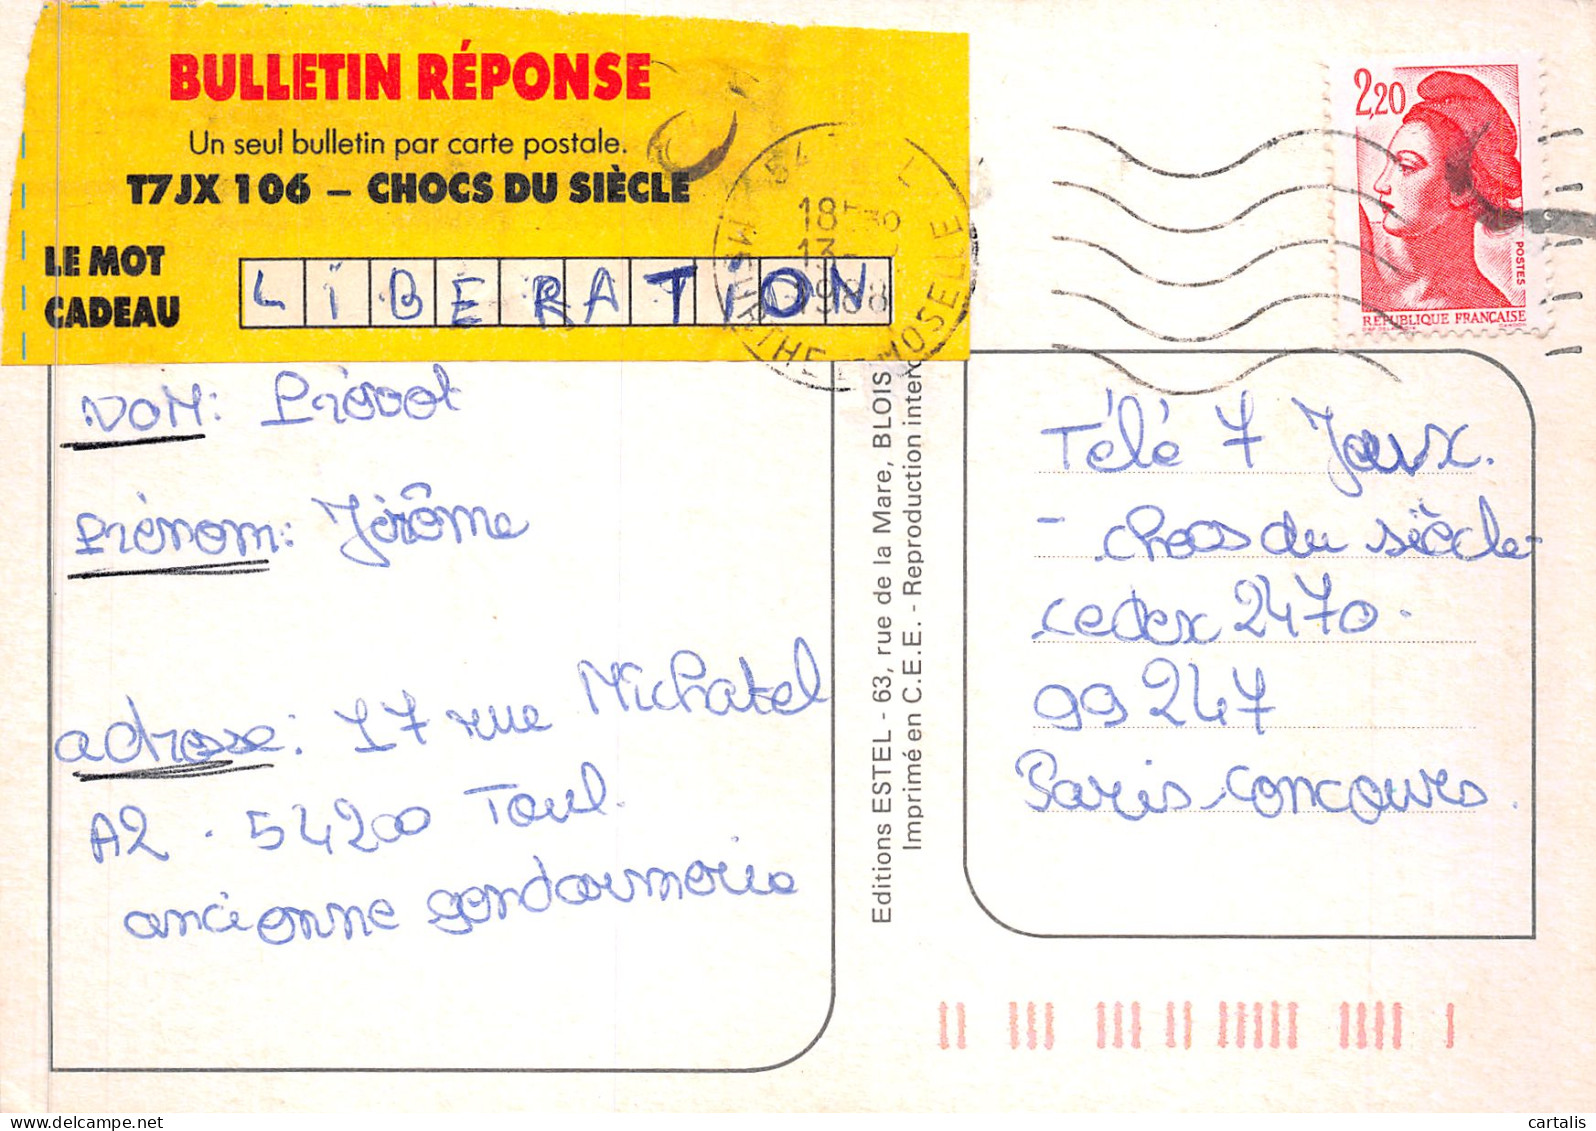 BULLETIN RÉPONSE
Un seul bulletin par carte postale.
T7JX 106 – CHOCS DU SIÈCLE
LE MOT
CADEAU
LIBERATION
NOM: Prévot
Prénom: Jérôme
adresse: 17 rue Michatel
A2 . 54200 Toul.
ancienne gendarmerie
Editions ESTEL - 63, rue de la Mare, BLOIS
Imprimé en C.E.E. - Reproduction interd
54
18
13
1988
MEURTHE ET MOSELLE
2,20
POSTES
REPUBLIQUE FRANÇAISE
Télé 7 Jeux.
- chocs du siècle -
cedex 2470.
99247
Paris-concours.
cartalis
delcampe.net